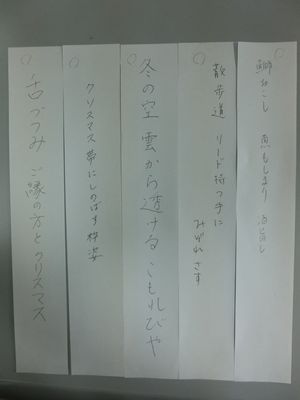 鰤おこし 魚もしまり 酒旨し
散歩道 リード持つ手に
みぞれさす
冬の空 雲から透ける こもれびや
クリスマス 帯にしのばす 柊姿
舌づつみ ご縁の方と クリスマス